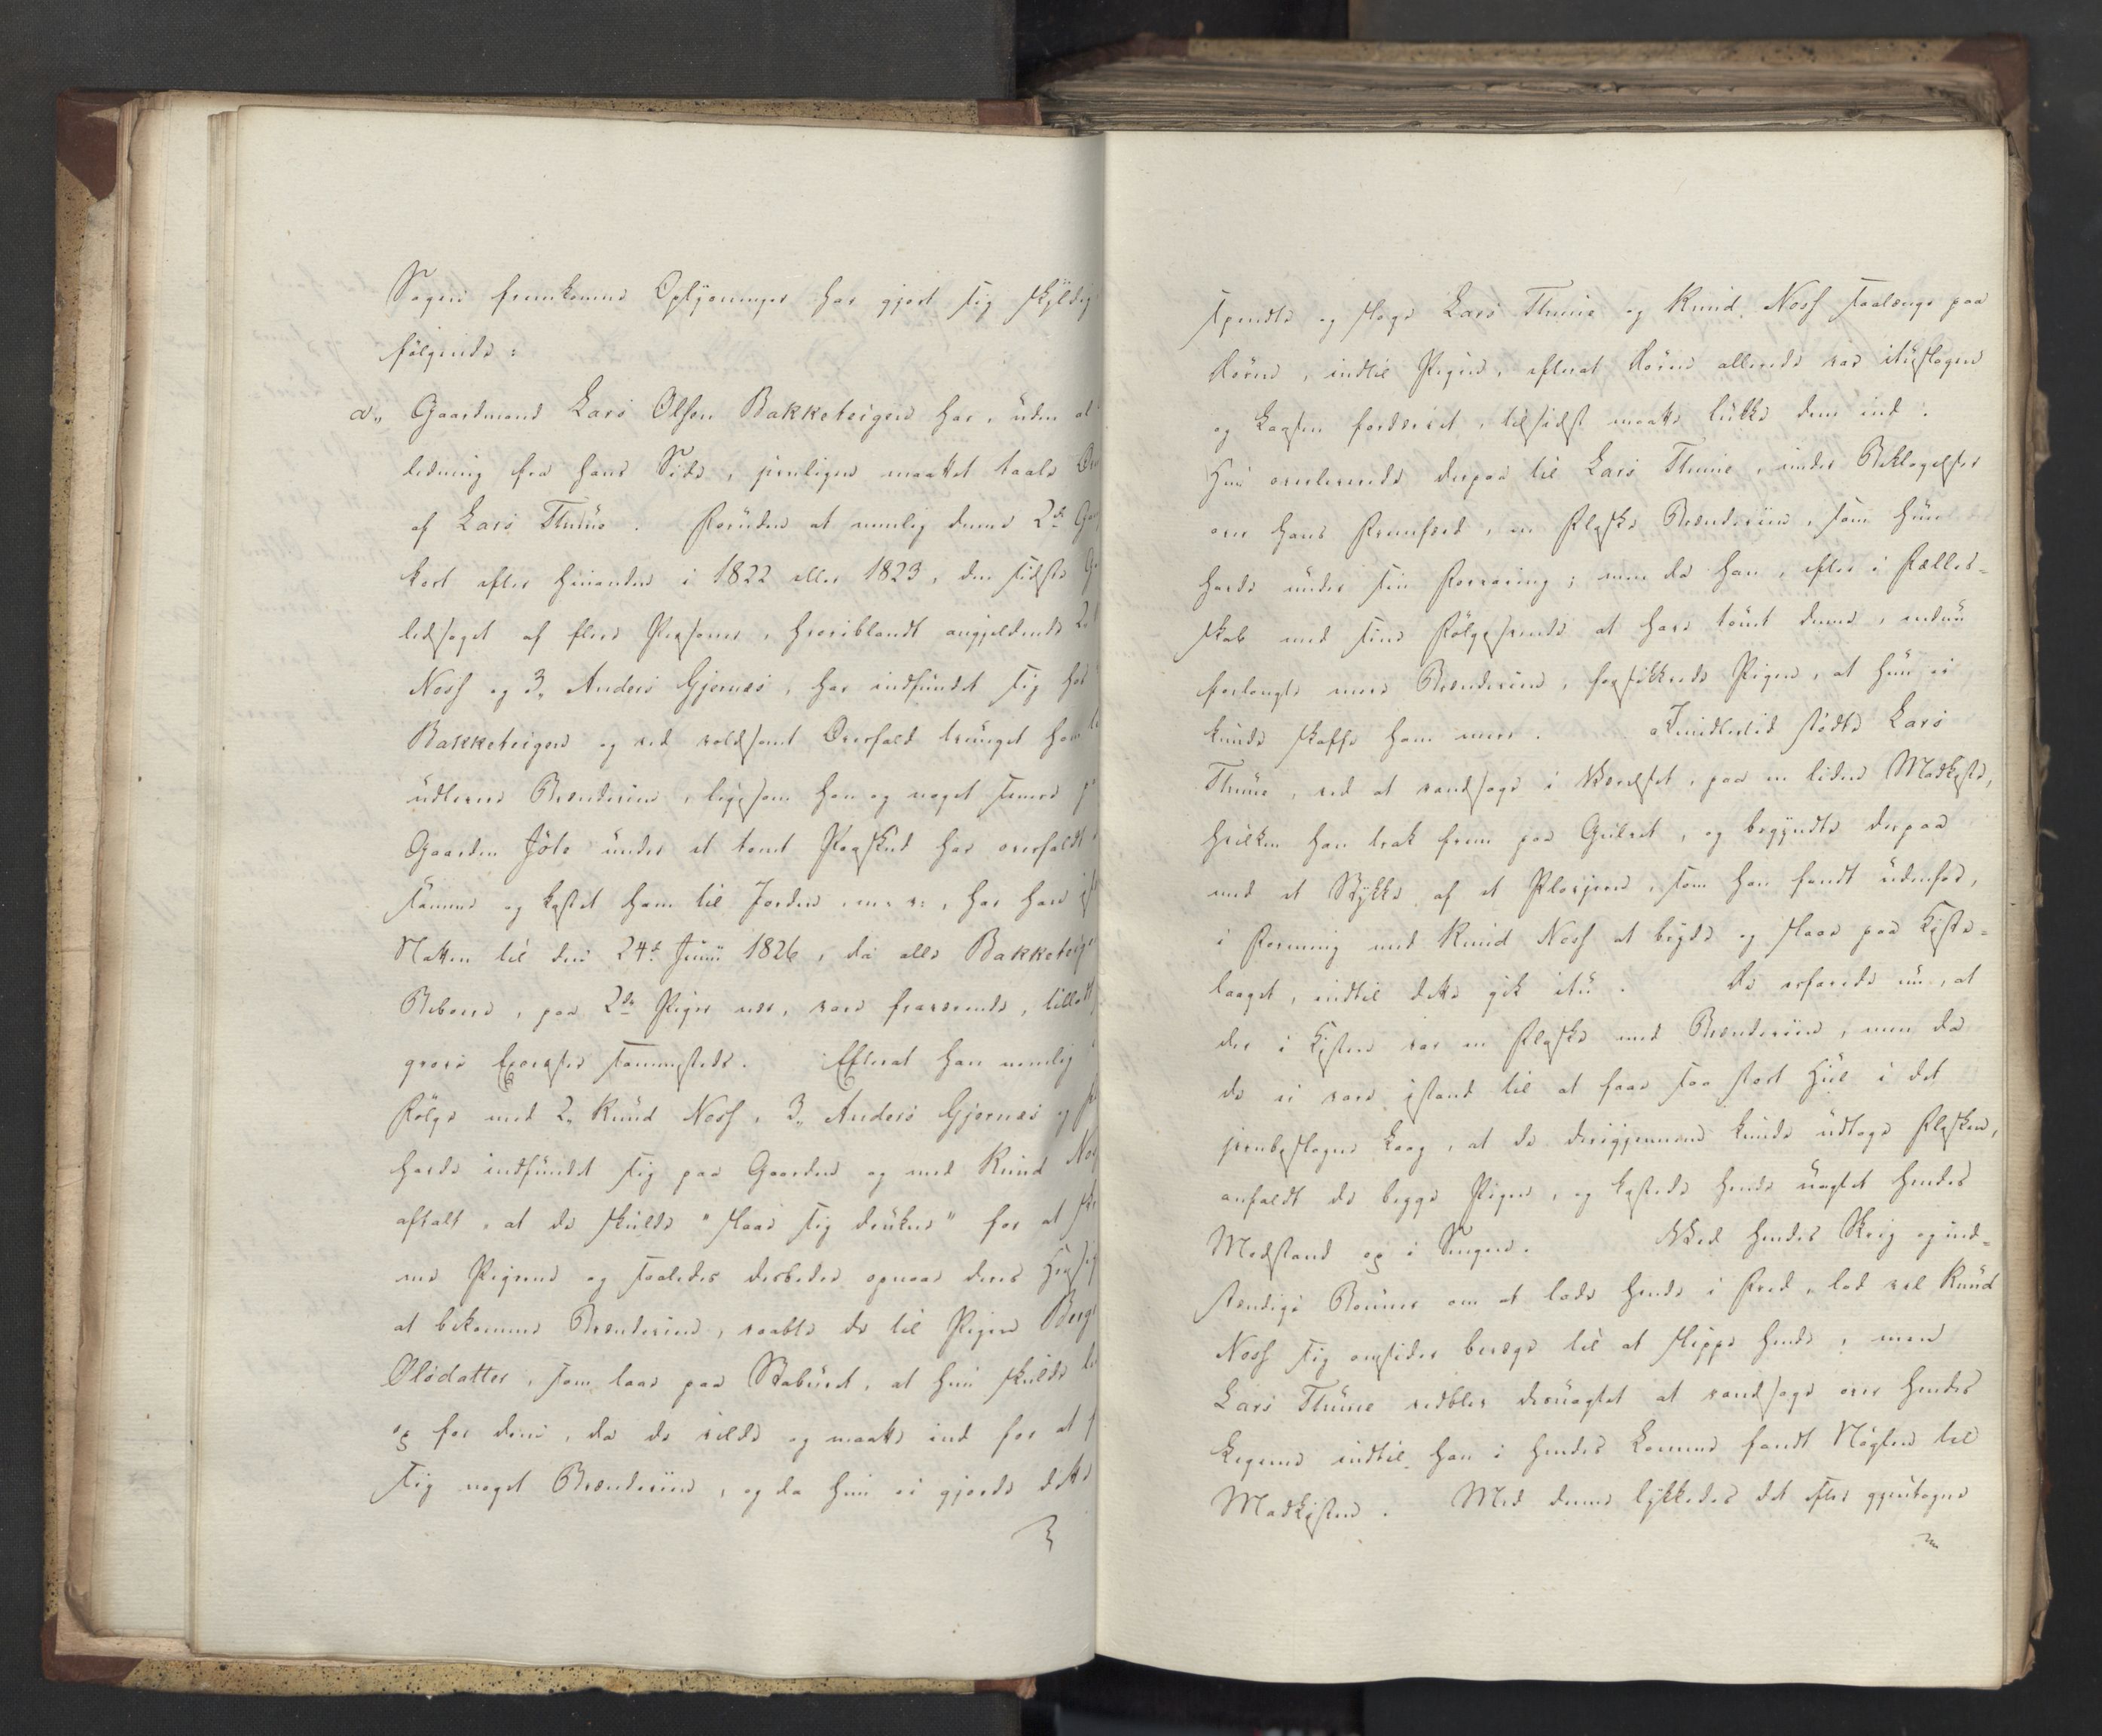 Sagens fremkomne Oplysninger har gjort sig skyldig
følgende:
a„ Gaardmand Lars Olsen Bakketeigen har, uden al
ledning fra hans Side, jevnligen maattet taale
af Lars Thune. Foruden at nemlig denne 2de
kort efter hinanden i 1822 eller 1823, den sidste
ledsaget af flere Personer, hvoriblandt angjeldende
Noss og 3„ Anders Gjernæs, har indfundet sig hos
Bakketeigen og ved voldsomt Overfald tvunget ham
udlevere Brændeviin, ligesom han og noget senere
Gaarden Jøte under et tomt Paaskud har overfaldt
samme og kastet ham til Jorden m: v:, har han
Natten til den 24de Junii 1826, da alle Bakketeig
Beboere, paa 2de Piger nær, vare fraværende, tilladt
grove Excesser sammesteds. Efterat han nemlig
Følge med 2„ Knud Noss, 3„ Anders Gjernæs og
havde indfundet sig paa Gaarden og med Knud
aftalt, at de skulde "slaae sig drukne" for at
me Pigerne og saaledes derved opnaae deres
at bekomme Brændeviin, raabte de til Pigen
Olsdatter, som laae paa Staburet, at hun skulde
op for dem, da de vilde og maatte ind for at
sig noget Brændeviin, og da hun ei gjorde dette
spendte og sloge Lars Thune og Knud Noss saalænge paa
Døren, indtil Pigen, efterat Døren allerede var ituslagen
og Laasen fordærvet, tilsidst maatte lukke dem ind.
Hun overleverede derpaa til Lars Thune, under Beklagelser
over hans Fremfærd, en Flaske Brændeviin, som hun
havde under sin Forvaring; men da han, efter i Fælles-
skab med sine Følgesvende at have tømt denne, endnu
forlangte mere Brændeviin, forsikkrede Pigen, at hun ei
kunde skaffe ham mere. Imidlertid stødte Lars
Thune, ved at randsage i Værelset, paa en liden Madkiste,
hvilken han trak frem paa Gulvet, og begyndte derpaa
med et Stykke af et Plovjern, som han fandt udenfor,
i Forening med Knud Noss at bryde og slaae paa Kiste-
laaget, indtil dette gik itu. De erfarede nu, at
der i Kisten var en Flaske med Brændeviin, men da
de ei vare istand til at faae saa stort Hul i det
jernbeslagne Laag, at de derigjennem kunde udtage Flasken,
anfaldt de begge Pigen, og kastede hende uagtet hendes
Modstand op i Sengen. Ved hendes Skrig og ind-
stændige Bønner om at lade hende i Fred, lod vel Knud
Noss sig omsider bevæge til at slippe hende, men
Lars Thune vedblev desuagtet at randsage over hendes
Legeme indtil han i hendes Lomme fandt Nøglen til
Madkisten. Med denne lykkedes det efter gjentagne